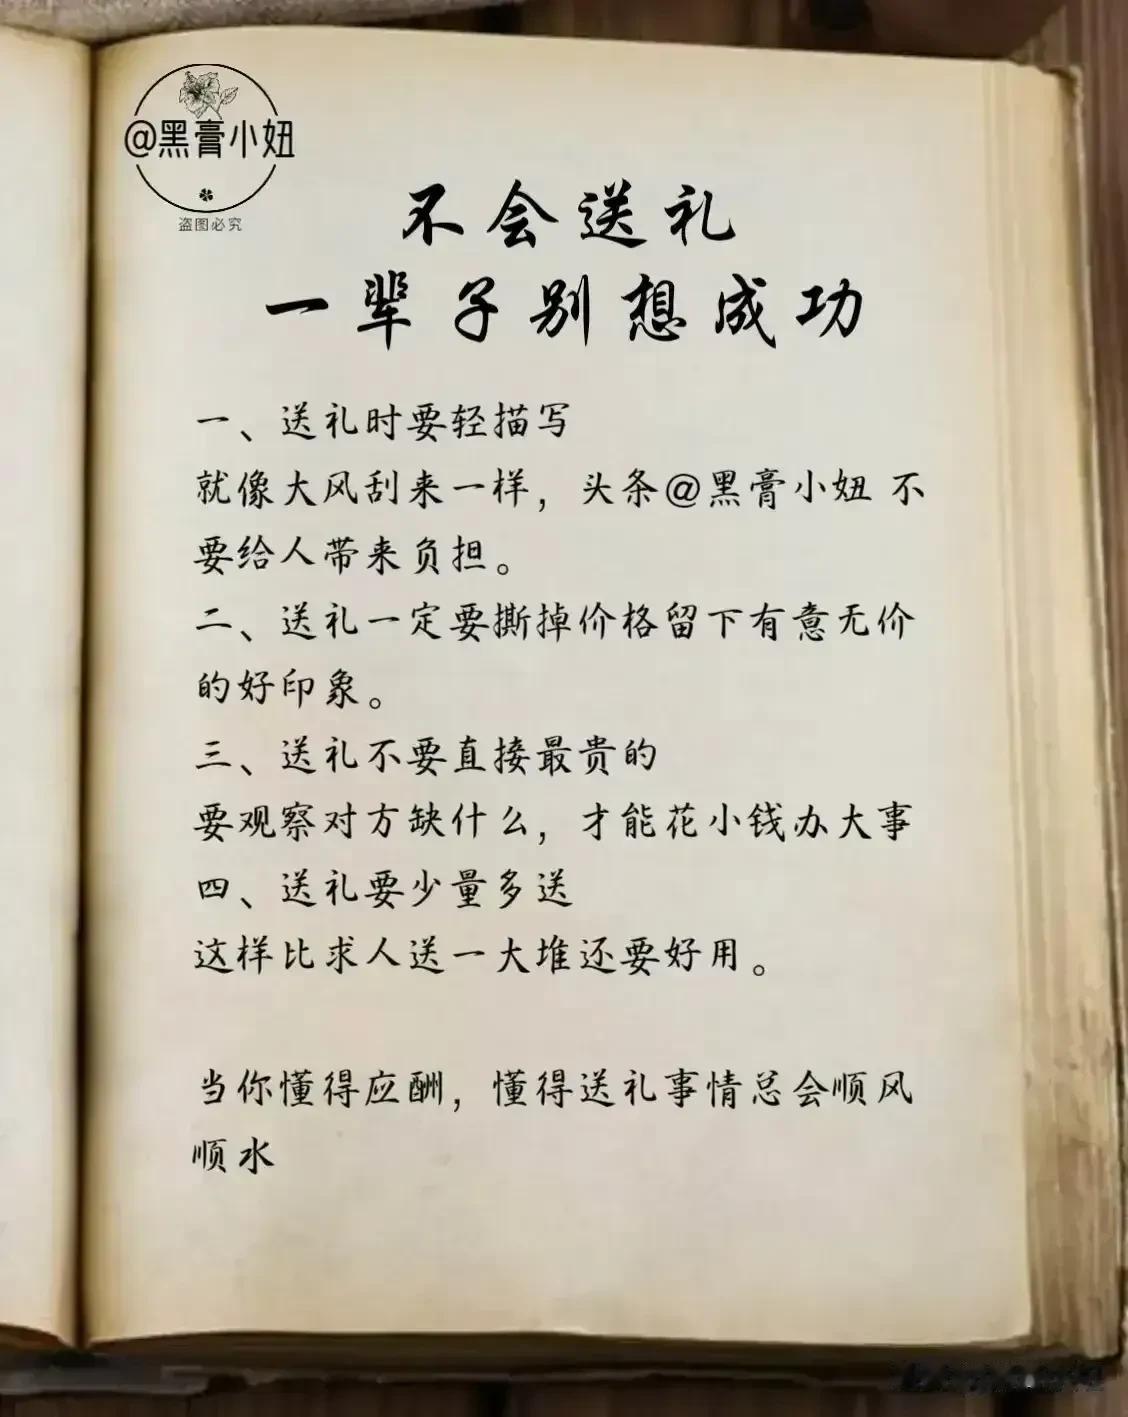 @黑膏小妞
盗图必究
不会送礼
一辈子别想成功
一、送礼时要轻描写
就像大风刮来一样，头条@黑膏小妞 不
要给人带来负担。
二、送礼一定要撕掉价格留下有意无价
的好印象。
三、送礼不要直接最贵的
要观察对方缺什么，才能花小钱办大事
四、送礼要少量多送
这样比求人送一大堆还要好用。
当你懂得应酬，懂得送礼事情总会顺风
顺水